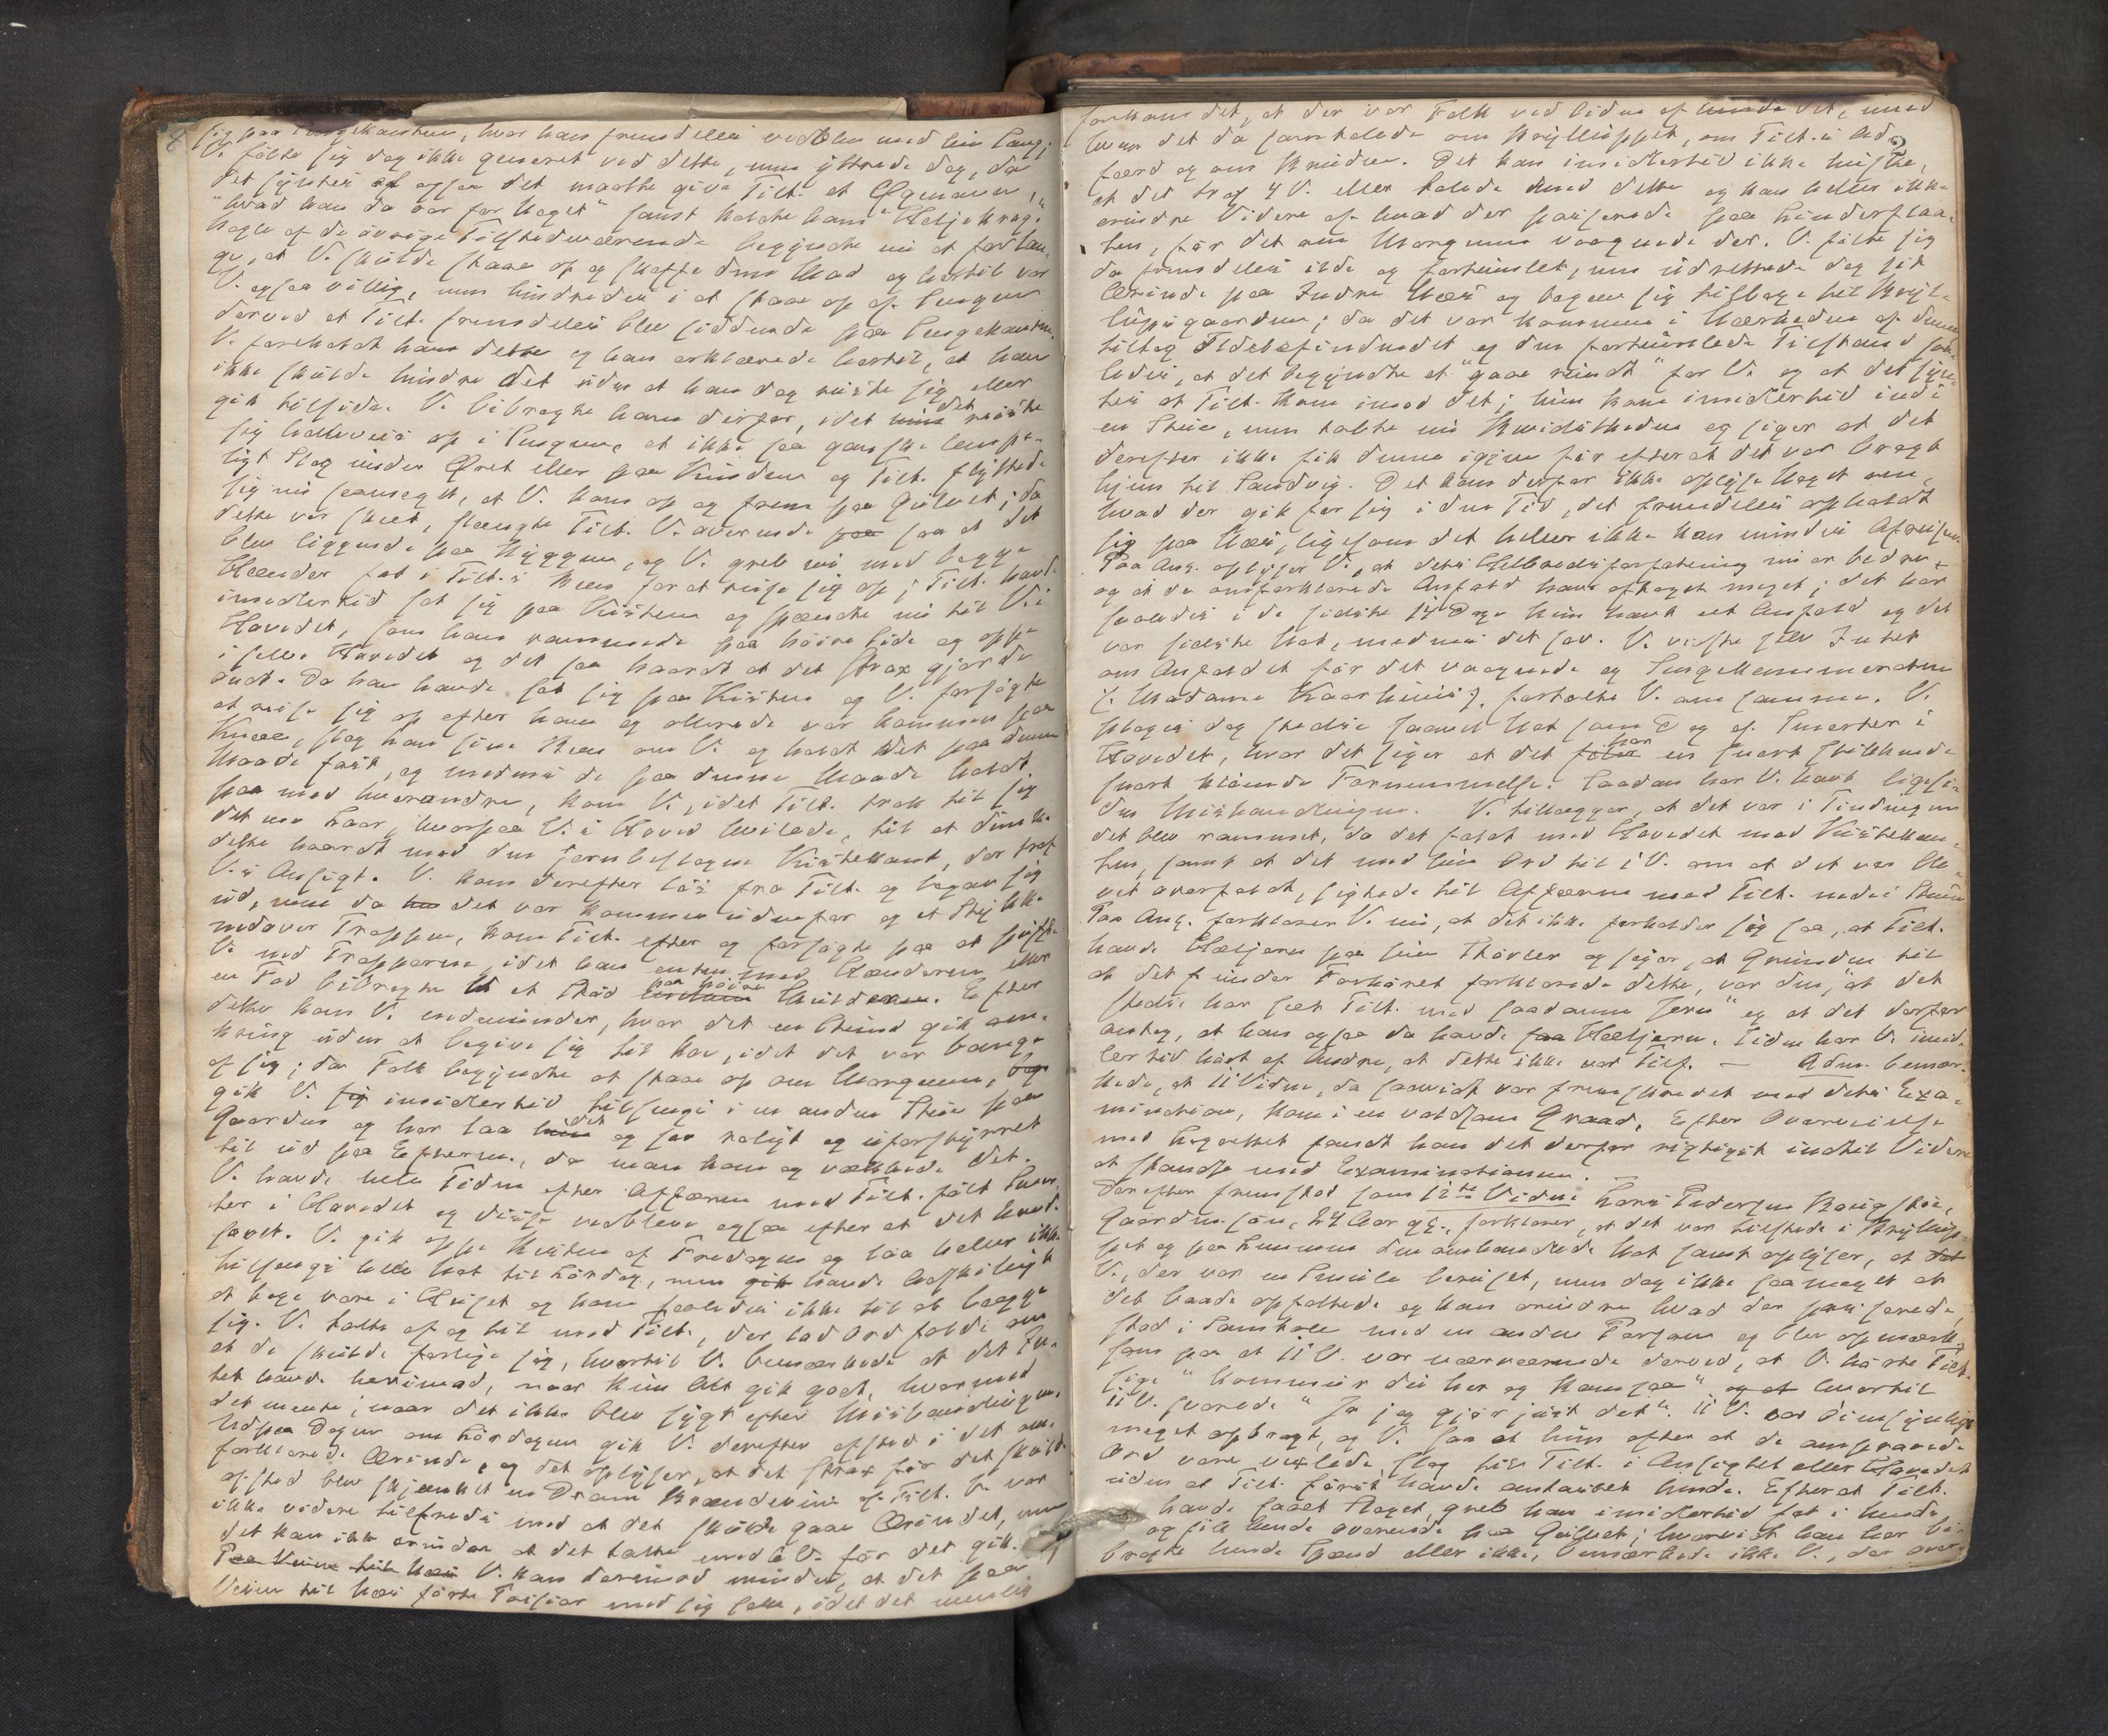 sig paa Sengekanten, hvor han fremdeles vedblev med sin Sang;
V. følte sig dog ikke generet ved dette, men yttrede dog, da
det syntes at ogsaa det maatte give Tilt. et Øgenavn,
"hvad han da var for Noget" samt kaldte ham "Heljekrage".
Nogle af de øvrige Tilstedeværende begyndte nu at forlan-
ge, at V. skulde staae op og skaffe dem Mad og hertil var
V. ogsaa villig, men hindredes i at staae op af Sengen
derved at Tilt. fremdeles blev siddende paa Sengekanten.
V. foreholdt ham dette og han erklærede hertil, at han
ikke skulde hindre det uden at han dog reiste sig eller
gik tilside. V. bibragte ham derfor, idet det reiste
sig halvveis op i Sengen, et ikke saa ganske lempe-
ligt Slag under Øret eller paa Kinden og Tilt. flyttede
sig nu saameget, at V. kom op og frem paa Gulvet; da
dette var skeet, slængte Tilt. V. overende saa at det
blev liggende paa Ryggen, og V. greb nu med begge
Hænder fat i Tilt.s Been for at reise sig op; Tilt. havde
imidlertid sat sig paa Kisten og spændte nu til V. i
Hovedet, som han rammede paa høire Side og oppe
i selve Hovedet og det saa haardt at det strax gjorde
ondt. Da han havde sat sig paa Kisten og V. forsøgte
at reise sig op efter ham og allerede var kommen paa
Knæe, slog han sine Been om V. og holdt det paa denne
Maade fast, og medens de paa denne Maade holdt
paa med hverandre, kom V., idet Tilt. trak til sig
det ene Laar, hvorpaa V.s Hoved hvilede, til at dunke
dette haardt mod den jernbeslagne Kistekant, der traf
V.s Ansigt. V. kom derefter løs fra Tilt. og begav sig
ud, men da det var kommen udenfor og et Stykke
nedover Trappen, kom Tilt. efter og forsøgte paa at puffe
V. ned Trapperne, idet han enten med Hænderne eller
en Fod bibragte et Stød paa høire Skulderen. Efter
dette kom V. endeunder, hvor det en Stund gik om-
kring uden at begive sig til Ro, idet det var bange
af sig; da Folk begyndte at staae op om Morgenen,
gik V. imidlertid tilsengs i en anden Stue paa
Gaarden og her laa det og sov roligt og uforstyrret
til ud paa Efterm., da man kom og vækkede det.
V. havde hele Tiden efter Affæren med Tilt. følt Smer-
ter i Hovedet og disse vedbleve ogsaa efter at det havde
sovet. V. gik oppe Resten af Fredagen og laa heller ikke
tilsengs hele Nat til Lørdag, men havde Adskilligt
at tage vare i Huset og kom saaledes ikke til at lægge
sig. V. talte af og til med Tilt., der lod Ord falde om
at de skulde forlige sig, hvortil V. bemærkede at det In-
tet havde herimod, naar kun Alt gik godt, hvormed
det mente; naar det ikke blev sygt efter Mishandlingen.
Udpaa Dagen om Lørdagen gik V. derefter afsted i det om-
forklarede Ærinde, og det oplyser, at det strax før det skulde
afsted blev skjænket en Dram Brændeviin af Tilt. V. var
ikke videre tilfreds med at det skulde gaae Ærindet, men
det kan ikke erindre at det talte med 6 V. før det gik.
Paa Veien til Næs V. kan derimod mindes, at det paa
Veien til Næs førte Passiar med sig selv, idet det meente

forekom det, at der var Folk ved Siden af det, med
hvem det da samtalede om Brylluppet, om Tilt.s Ad-
færd og om Bruden. Det kan imidlertid ikke huske,
at det traf 4 V. eller talede med dette og kan heller ikke
erindre Videre af hvad der passerede paa Hinderslaa-
ten, før det om Morgenen vaagnede der. V. følte sig
da fremdeles ilde og fortumlet, men udrettede dog sit
Ærinde paa Indre Næs og begav sig tilbage til Bryl-
lupsgaarden; da det var kommen i Nærheden af denne
tiltog Ildebefindendet og den fortumlede Tilstand saa-
ledes, at det begyndte at "gaae rundt" for V. og at det syn-
tes at Tilt. kom imod det; hun kom imidlertid ind i
en Stue, men tabte nu Bevidstheden og siger at det
derefter ikke fik denne igjen før efterat det var bragt
hjem til Sandvig. Det kan derfor ikke oplyse Noget om
hvad der gik for sig i den Tid, det fremdeles opholdt
sig paa Næs, ligesom det heller ikke kan mindes Afreisen.
Paa Anl. oplyser V., at dets Helbredsforfatning nu er bedre
og at de omforklarede Anfald have aftaget meget; det har
saaledes i de sidste 14 Dage kun havt eet Anfald og det
var sidste Nat, medens det sov. V. vidste selv Intet
om Anfaldet før det vaagnede og Sengekammeraten
/: Madame Kaarhuus :/ fortalte V. om samme. V.
plages dog stedse saavel Nat som Dag af Smerter i
Hovedet, hvor det siger at det har en snart stikkende
snart kløende Fornemmelse. Saadan har V. havt ligesi-
den Mishandlingen. V. tillægger, at det var i Tindingen
det blev rammet, da det faldt med Hovedet mod Kistekan-
ten, samt at det med sine Ord til 1 V. om at det var ble-
vet overfaldt, sigtede til Affæren med Tilt. nede i Stuen
Paa Anl. forklarer V. nu, at det ikke forholder sig saa, at Tilt.
havde Hæljern paa sine Støvler og siger, at Grunden til
at det under Forhøret forklarede dette, var den, "at det
stedse har seet Tilt. med saadanne Jern" og at det derfor
antog, at han ogsaa da havde Hæljern. Siden har V. imid-
lertid hørt af Andre, at dette ikke var Tilf. — Adm. bemær-
kede, at 11 Vidne, da saavidt var fremskredet med dets Exa-
mination, kom i en voldsom Graad. Efter Overveielse
med Lagrettet fandt han det derfor rigtigst indtil Videre
at standse med Examinationen.
Derefter fremstod som 12te Vidne Lars Pedersen Kongstøe,
Gaardm.søn, 24 Aar gl., forklarer, at det var tilstede i Brylup-
pet og paa Lemmen den omhandlede Nat samt oplyser, at
V., der var en Smule beruset, men dog ikke saa meget at
det baade opfattede og kan erindre hvad der passerede,
stod i Samtale med en anden Person og blev opmærk-
som paa at 11 V. var nærværende derved, at V. hørte Tilt.
sige "kommer du her og kom saa" hvortil
11 V. svarede "Ja jeg gjør just det". 11 V. var øiensynligt
meget opbragt, og V. saa at hun efter at de ansvarede
Ord vare vexlede slog til Tilt. i Ansigtet eller Hovedet
uden at Tilt. først havde antastet hende. Efterat Tilt.
havde faaet Slaget, greb han imidlertid fat i hende
og fik hende overende paa Gulvet; hvorvidt han her bi-
bragte hende Spænd eller ikke, bemærkede ikke V., der over-